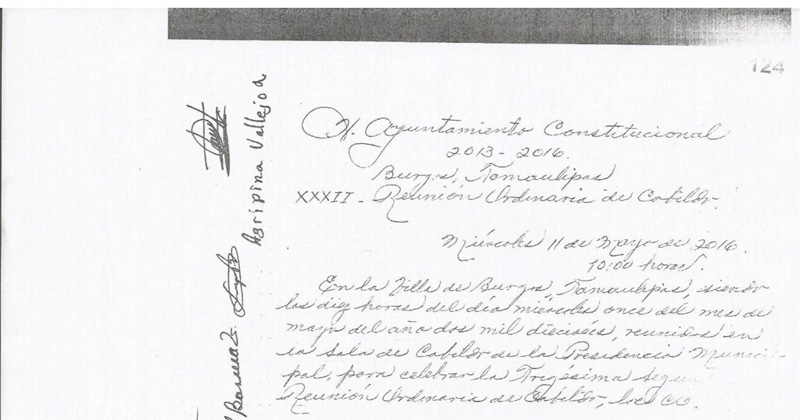 124
H. Ayuntamiento Constitucional
2013-2016.
Burgos, Tamaulipas
XXXII- Reunión Ordinaria de Cabildo.
Miércoles 11 de Mayo de 2016.
10:00 horas.
En la Villa de Burgos, Tamaulipas, siendo
las diez horas del día miércoles once del mes de
mayo del año dos mil dieciséis, reunidos en
la Sala de Cabildo de la Presidencia Munici-
pal, para celebrar la Trigésima Segun
Reunión Ordinaria de Cabildo, los CC.
Agripina Vallejo